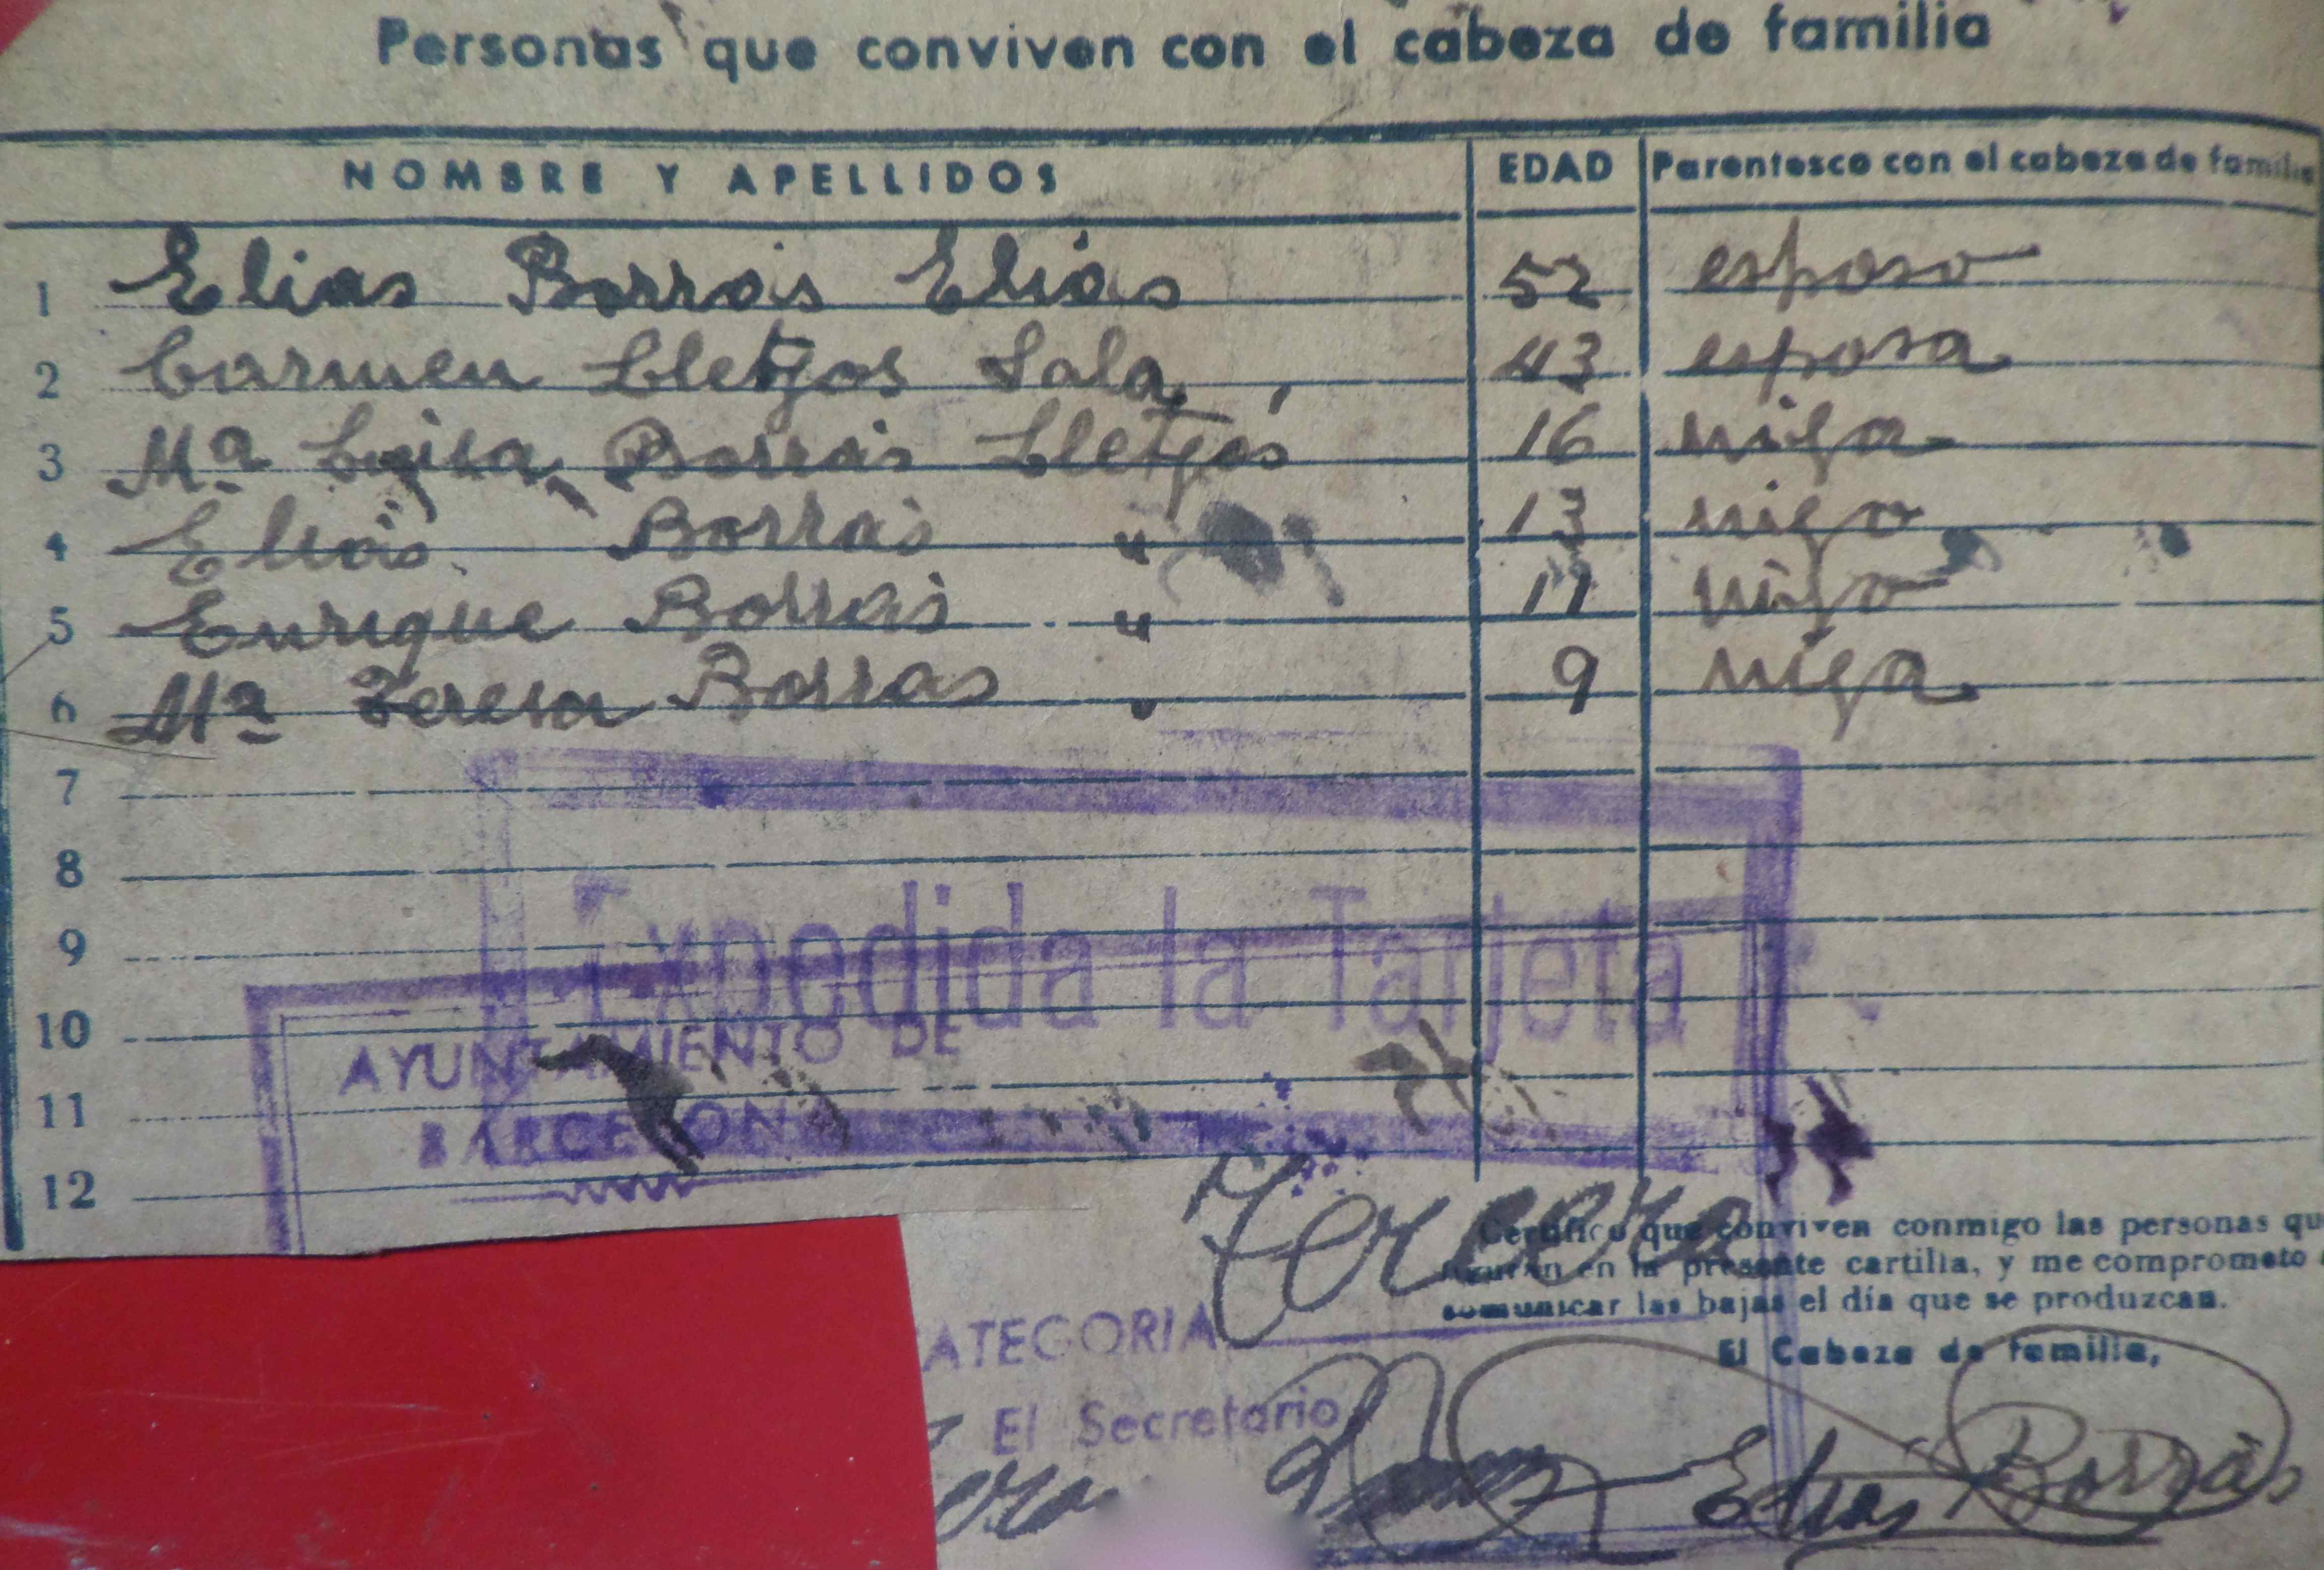 Personas que conviven con el cabeza de familia
NOMBRE Y APELLIDOS EDAD Parentesco con el cabeza de familia
1 Elias Borrás Elías 52 esposo
2 Carmen Lletjos Sala 43 esposa
3 Mª Luisa Borrás Lletjós 16 higa
4 Elias Borrás " 13 higo
5 Enrique Borrás " 11 higo
6 Mª Teresa Borras " 9 higa
7
8
9
10
11
12
Expedida la Tarjeta
AYUNTAMIENTO DE
BARCELONA
Tercera
Certifico que conviven conmigo las personas qu
figuran en la presente cartilla, y me comprometo a
comunicar las bajas el día que se produzcan.
El Cabeza de familia,
ATEGORIA
El Secretario
Elias Borrás